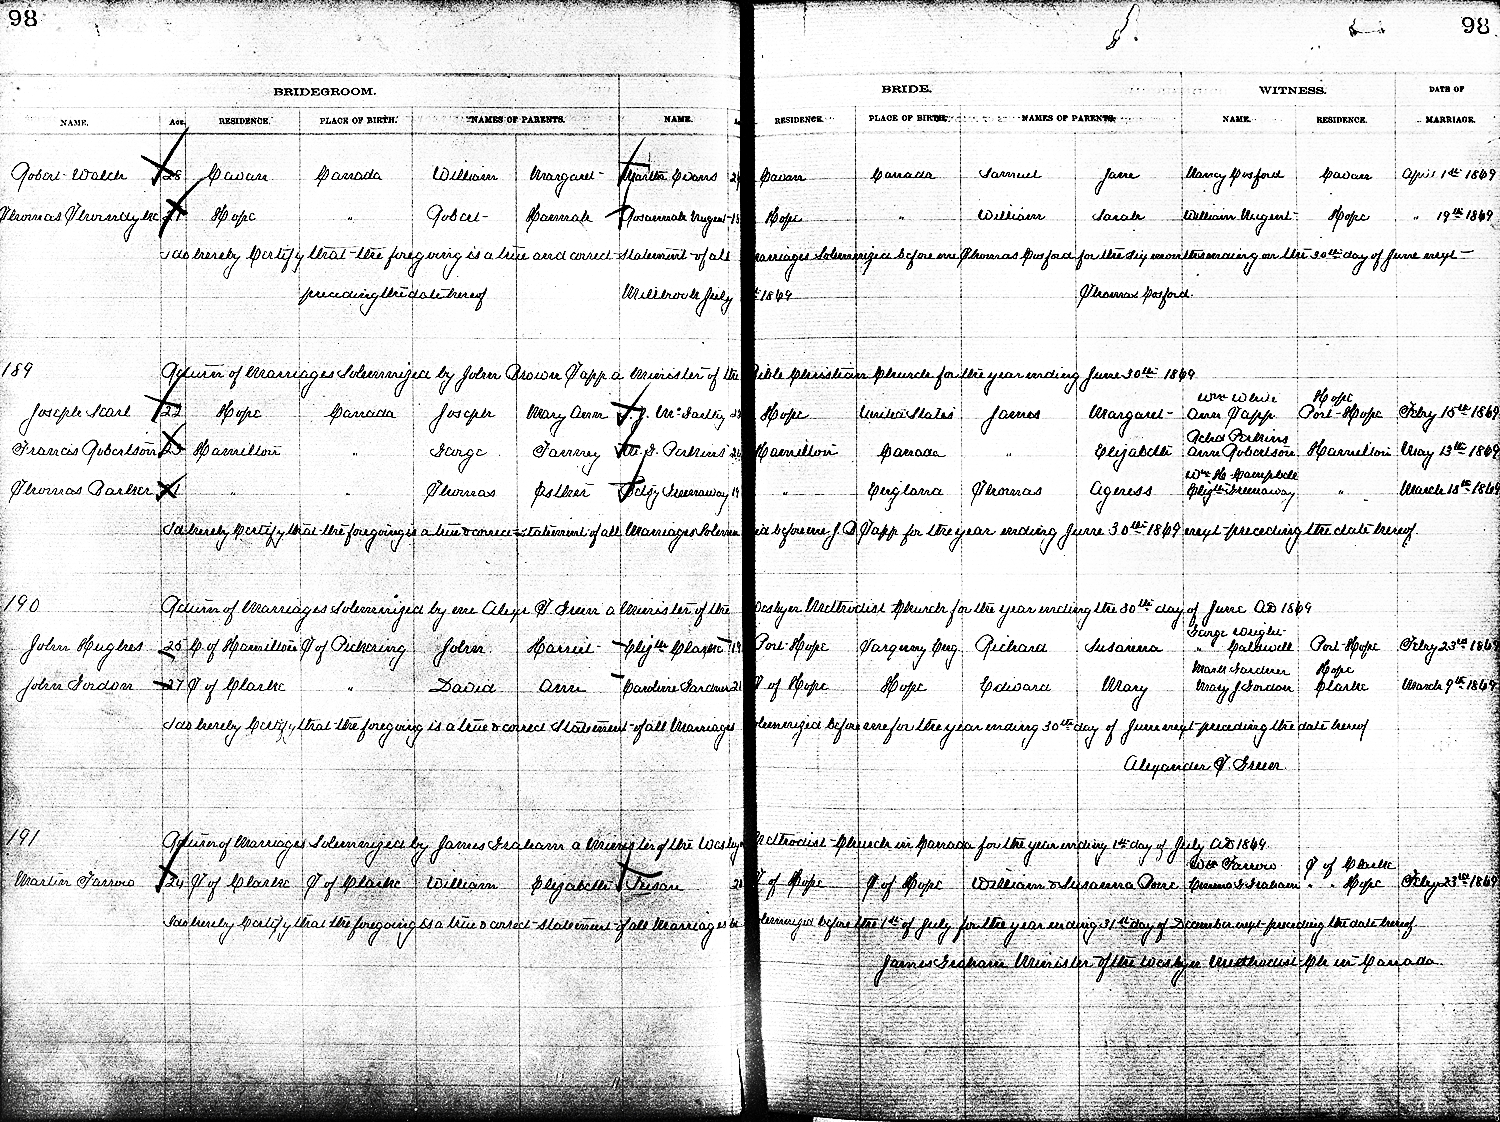 98 98
BRIDEGROOM. BRIDE. WITNESS. DATE OF
NAME. Age. RESIDENCE. PLACE OF BIRTH. NAMES OF PARENTS. NAME. RESIDENCE. PLACE OF BIRTH. NAMES OF PARENTS. NAME. RESIDENCE. MARRIAGE.
Robert Walch 28 Cavan Canada William Margaret Martha Evans Cavan Canada Samuel Jane Nancy Cosford Cavan April 1st 1869
Thomas 21 Hope " Robert Hannah Rosannah Nugent 18 Hope " William Sarah William Nugent Hope " 19th 1869
I do hereby Certify that the foregoing is a true and correct statement of all Marriages Solemnized before me Thomas Cosford for the Six months ending on the 30th day of June next
preceding the date hereof Millbrook July 1869 Thomas Cosford.
189 Return of Marriages Solemnized by John Brown Tapp a Minister of the Bible Christian Church for the year ending June 30th 1869
Wm White Hope
Joseph Scarl 22 Hope Canada Joseph Mary Ann Hope United States James Margaret Ann Tapp Port-Hope Febry 15th 1869
Perkins
Francis Robertson 23 Hamilton " George Fanny Perkins Hamilton Canada " Elizabeth Anne Robertson Hamilton May 13th 1869
Wm H Campbell
Thomas Barker 21 " " Thomas Esther Betsy Greenaway 19 " England Thomas Agness Elizth Greenaway " March 18th 1869
I do hereby Certify that the foregoing is a true & correct statement of all Marriages Solemnized before me J. B Tapp for the year ending June 30th 1869 next preceding the date hereof.
190 Return of Marriages Solemnized by me Alexr T. Green a Minister of the Wesleyan Methodist Church for the year ending the 30th day of June AD 1869
George Wright
John Hughes 25 T. of Hamilton T of Pickering John Harriet Elizth Clarke 19 Port-Hope Eng. Richard Susanna " Caldwell Port-Hope Febry 23rd 1869
Mark Gardner Hope
John Gordon 27 T of Clarke " David Ann Caroline Gardner 21 T of Hope Hope Edward Mary Mary J Gordon Clarke March 9th 1869
I do hereby Certify that the foregoing is a true & correct Statement of all Marriages Solemnized before me for the year ending 30th day of June next preceding the date hereof
Alexander T. Green
191 Return of Marriages Solemnized by James Graham a Minister of the Wesleyan Methodist Church in Canada for the year ending 1st day of July AD 1869.
Wm Farrow T of Clarke
Martin Farrow 24 T of Clarke T of Clarke William Elizabeth Susan T of Hope T of Hope William & Susanna Emma G Graham " " Hope Febry 23rd 1869
I do hereby Certify that the foregoing is a true & correct statement of all Marriages Solemnized before the 1st of July for the year ending 31st day of December next preceding the date hereof.
James Graham Minister of the Wesleyan Methodist Ch in Canada.